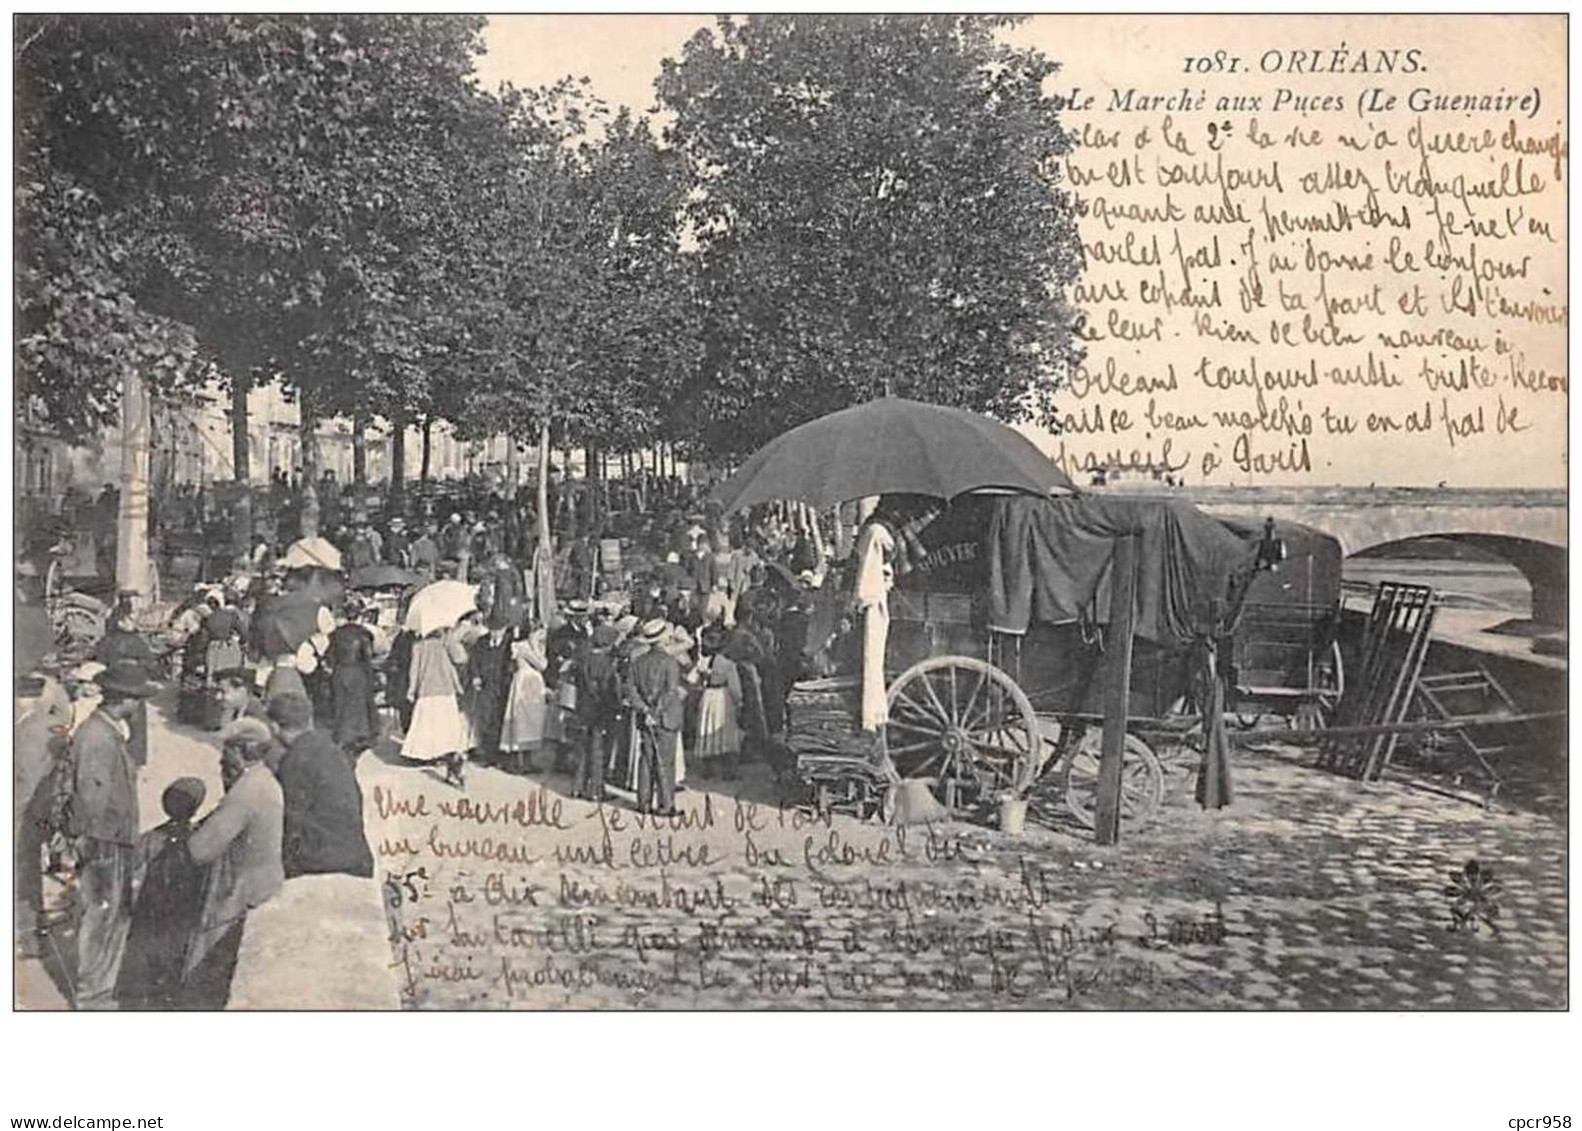 1081. ORLÉANS.
Le Marché aux Puces (Le Guenaire)
à la 2e la vie n'a guere changé
on est toujours assez tranquille
quant aux permissions je ne t'en
parles pas. J'ai donné le bonjour
aux copains de ta part et ils t'envoient
le leur. Rien de bien nouveau à
Orléans toujours aussi triste. Recon
ce beau marché tu en as pas de
pareil à Paris.
OUVERT
Une nouvelle je viens de voir
au bureau une lettre du Colonel du
55e à Aix demandant des renseignements
sur
J'irai probablement le voir au mois de
delcampe.net
cpcr958